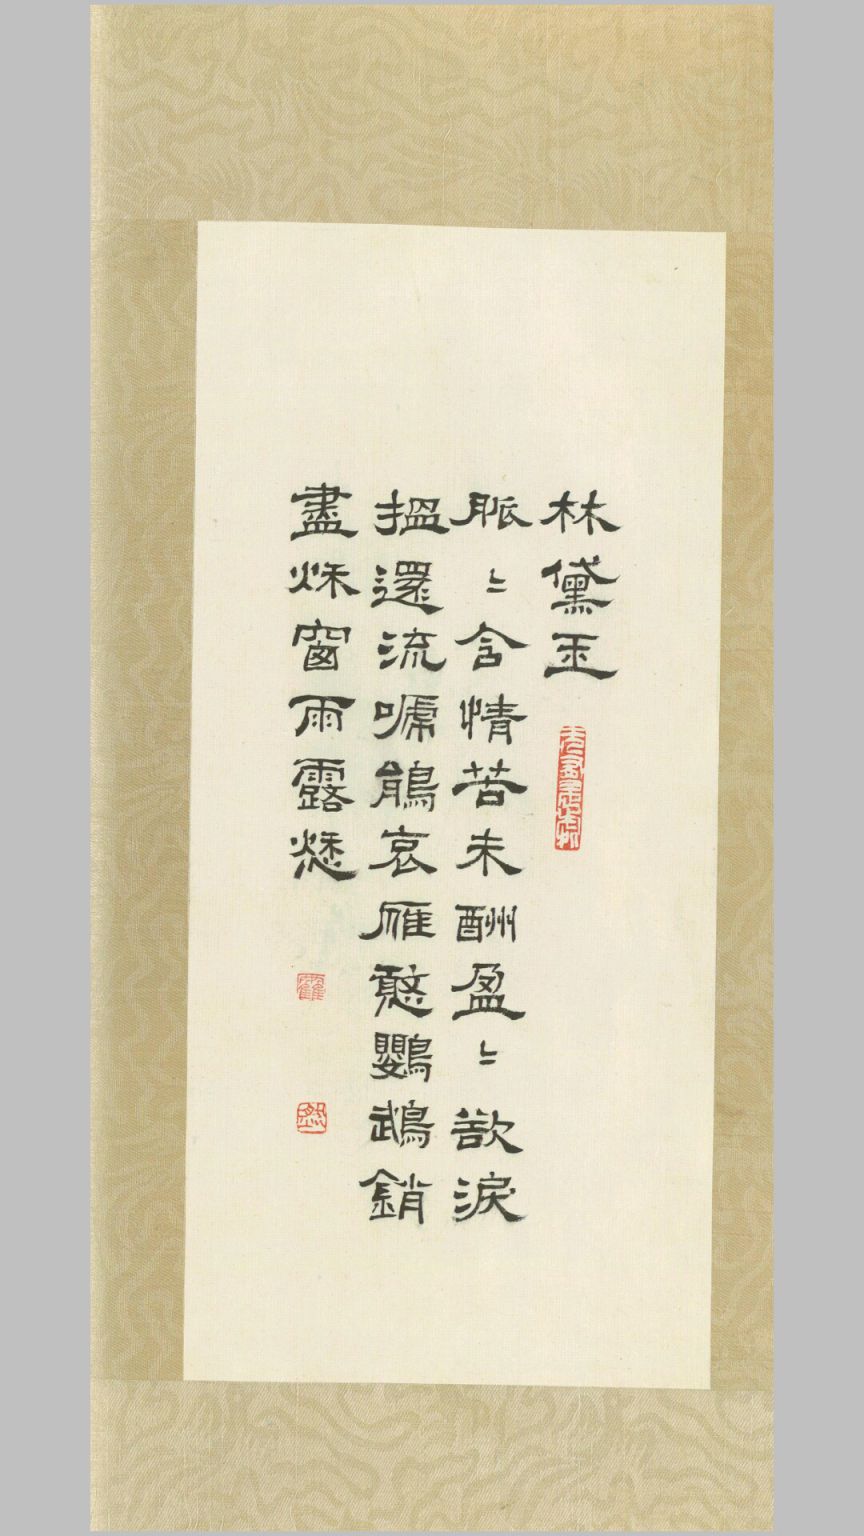 林黛玉
脈〻含情苦未酬盈〻欲淚
搵還流嗁鵑哀雁憨鸚鵡銷
盡秌窗雨露愁